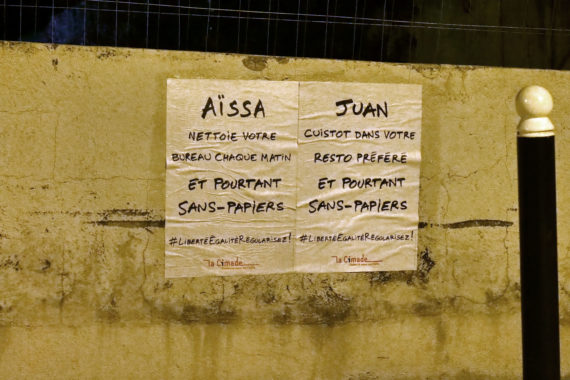 AÏSSA
NETTOIE VOTRE
BUREAU CHAQUE MATIN
ET POURTANT
SANS-PAPIERS
#LIBERTÉÉGALITÉRÉGULARISEZ!
la Cimade
JUAN
CUISTOT DANS VOTRE
RESTO PRÉFÉRÉ
ET POURTANT
SANS-PAPIERS
#LIBERTÉÉGALITÉRÉGULARISEZ!
la Cimade